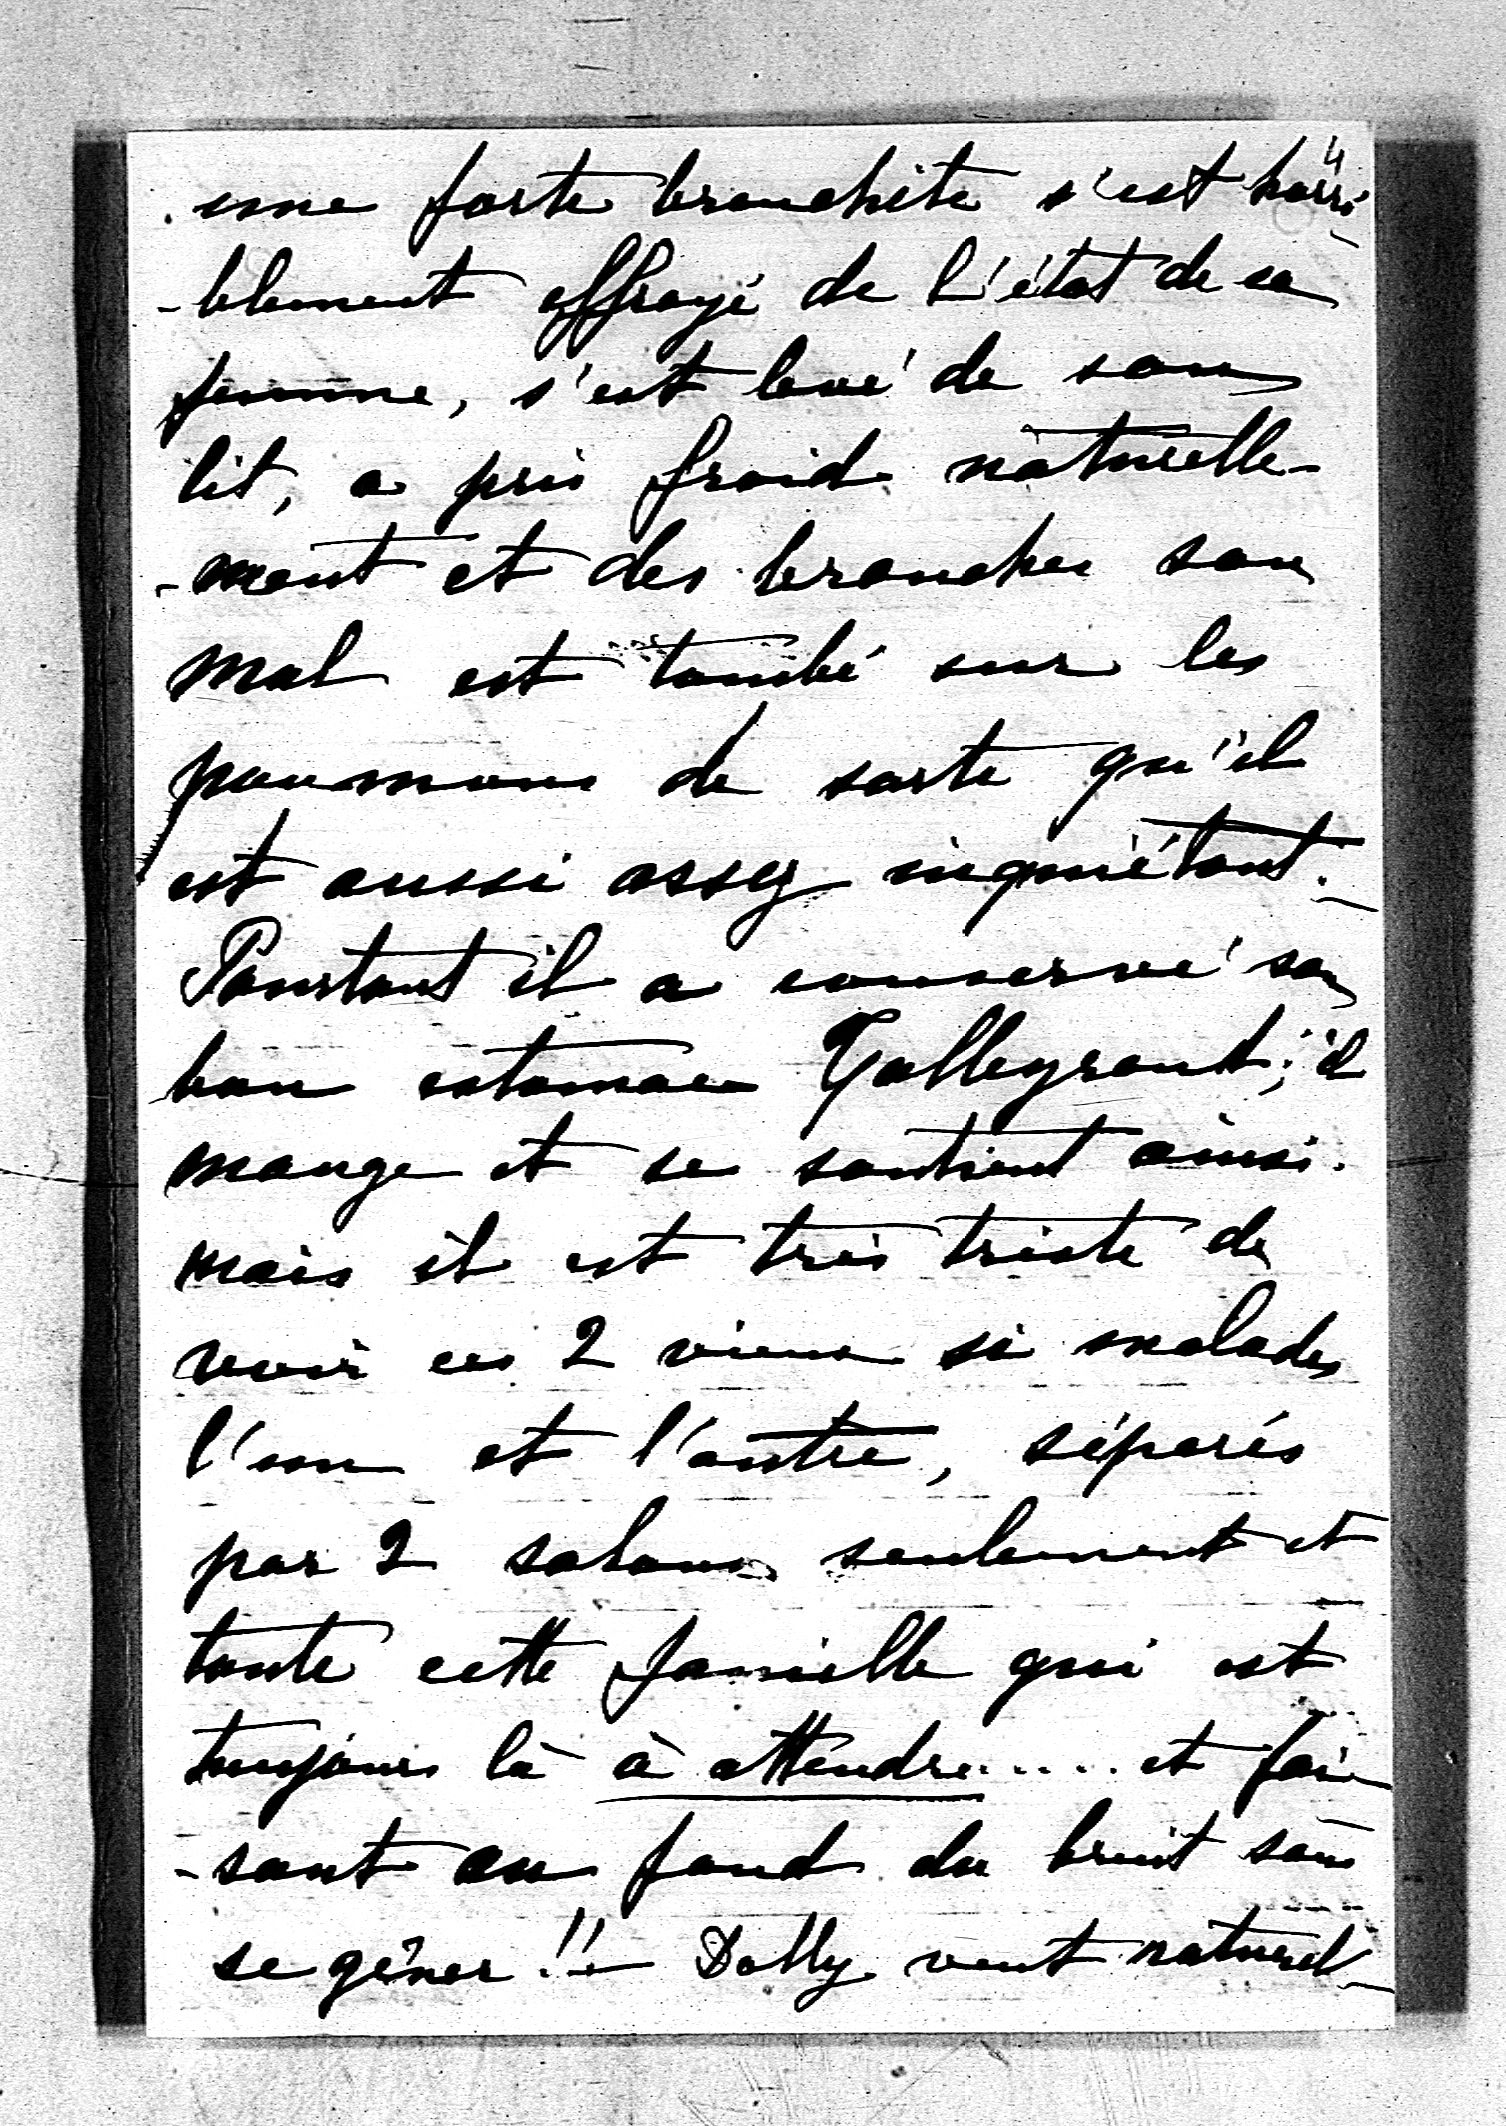 4
une forte bronchite s'est horri-
-blement effrayé de l'état de sa
femme, s'est levé de son
lit, a pris froid naturelle-
-ment et des bronches son
mal est tombé sur les
poumons de sorte qu'il
est aussi assez inquiétant. _
Pourtant il a conservé son
bon estomac Talleyrand; il
mange et se soutient ainsi.
mais il est très triste de
voir ces 2 vieux si malades
l'un et l'autre, séparés
par 2 salons seulement et
toute cette famille qui est
toujours là à attendre..... et fai-
-sant au fond du bruit sans
se gêner!! _ Dolly veut naturel-